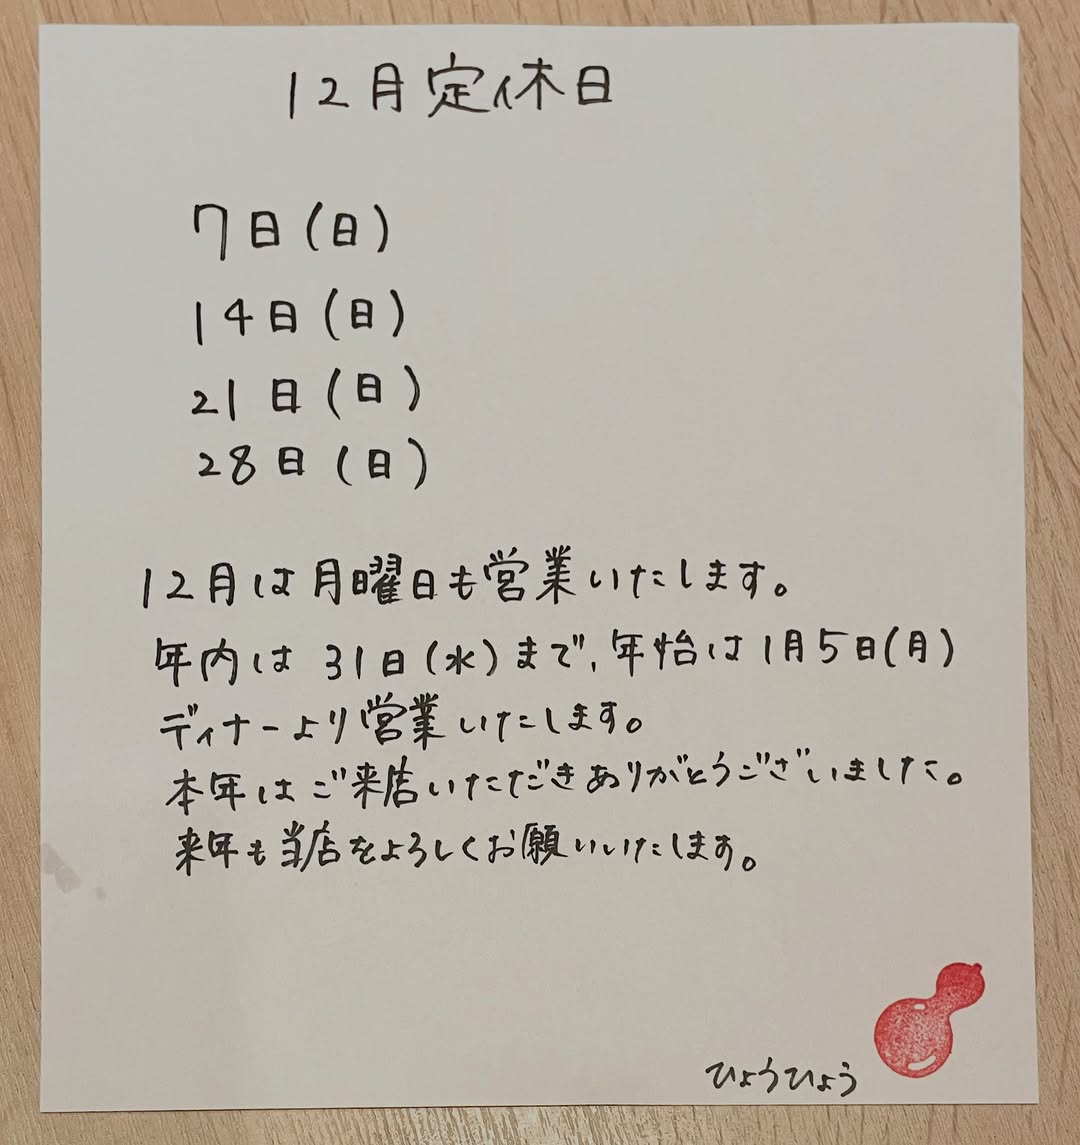 12月定休日
7日(日)
14日(日)
21日(日)
28日(日)
12月は月曜日も営業いたします。
年内は31日(水)まで、年始は1月5日(月)
ディナーより営業いたします。
本年はご来店いただきありがとうございました。
来年も当店をよろしくお願いいたします。
ひょうひょう